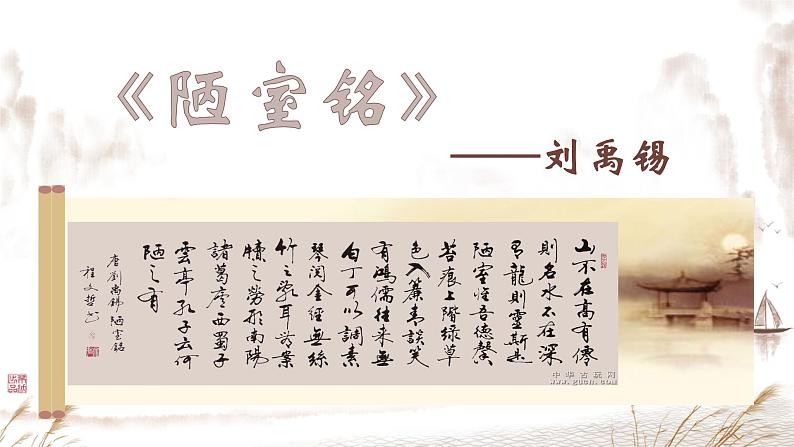 《陋室铭》
——刘禹锡
山不在高有僊
則名水不在深
有龍則靈斯是
陋室惟吾德馨
苔痕上階綠草
色入簾青談笑
有鴻儒往來無
白丁可以調素
琴閱金經無絲
竹之亂耳無案
牘之勞形南陽
諸葛廬西蜀子
雲亭孔子云何
陋之有
唐劉禹錫陋室銘
程文哲书
中华古玩网
www.gucn.com